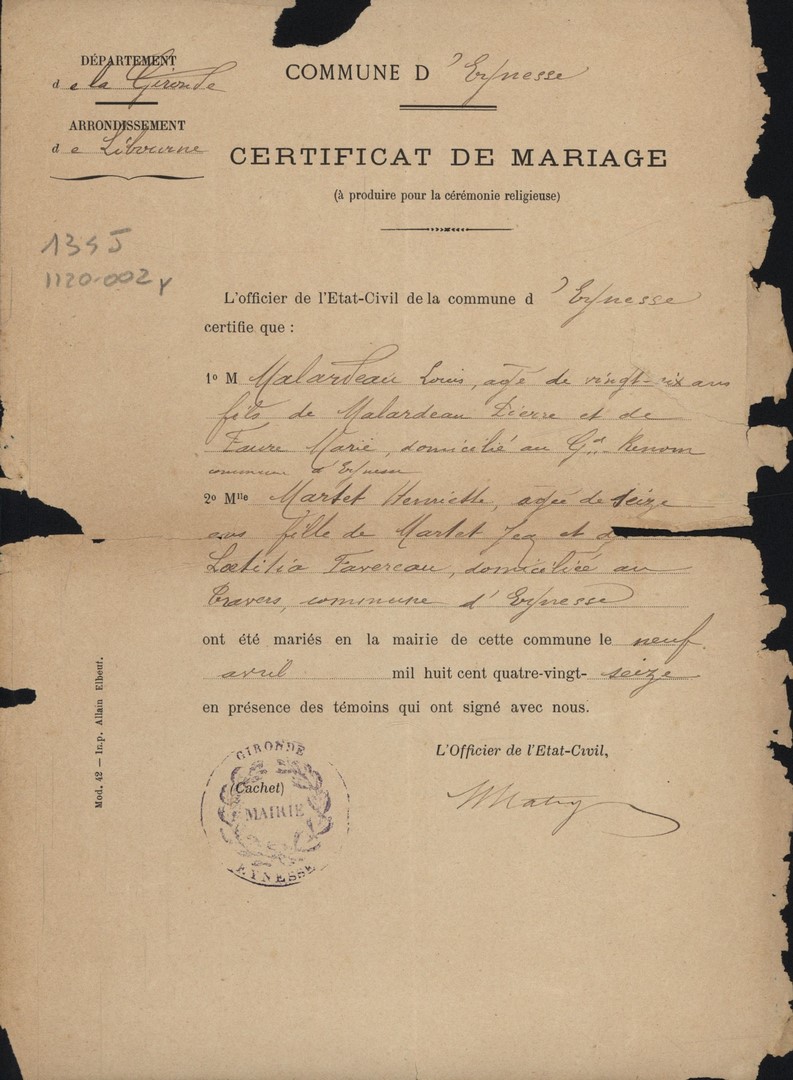 DÉPARTEMENT
de la Gironde
COMMUNE D'Eynesse
ARRONDISSEMENT
de Libourne
CERTIFICAT DE MARIAGE
(à produire pour la cérémonie religieuse)
1345
1120-002
L'officier de l'Etat-Civil de la commune d'Eynesse
certifie que :
1º M Malardeau Louis, agé de vingt-six ans
fils de Malardeau Pierre et de
Faure Marie, domicilié au Gd Renom
commune d'Eynesse
2º Mlle Martet Henriette, agée de seize
ans fille de Martet Jea et d
Lœtitia Favereau, domiciliée au
Travers, commune d'Eynesse
ont été mariés en la mairie de cette commune le neuf
avril mil huit cent quatre-vingt-seize
en présence des témoins qui ont signé avec nous.
L'Officier de l'Etat-Civil,
GIRONDE
(Cachet)
MAIRIE
EYNESSE
Mod. 42 — Imp. Allain Elbeuf.